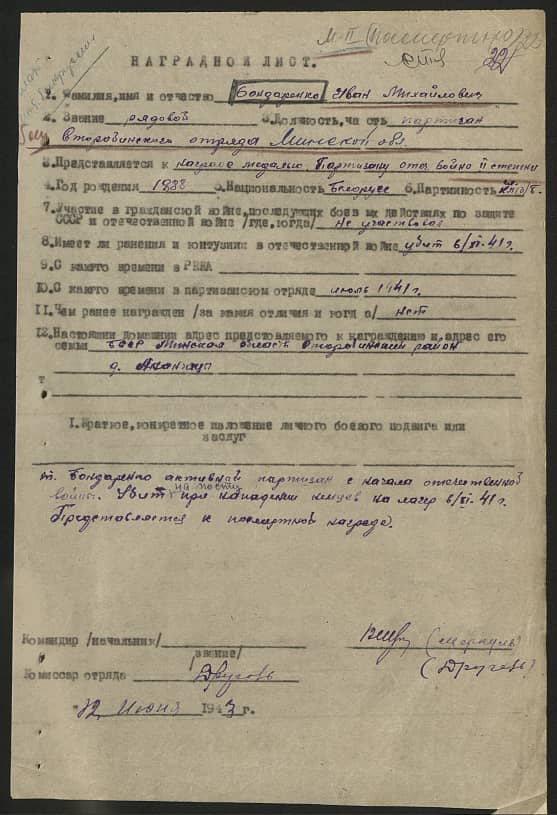 М-П (Посмертно)
НАГРАДНОЙ ЛИСТ.
1. Фамилия, имя и отчество Бондаренко Иван Михайлович
2. Звание рядовой 3. Должность, часть партизан
Старобинского отряда Минской обл.
3. Представляется к награде медалью Партизану отеч. войны II степени
4. Год рождения 1888 5. Национальность Белорусс 6. Партийность
7. Участие в гражданской войне, последующих боевых действиях по защите
СССР и отечественной войне /где, когда/ не участвовал
8. Имеет ли ранения и контузии в отечественной войне убит 6/XI-41г.
9. С какого времени в РККА
10. С какого времени в партизанском отряде июль 1941г.
11. Чем ранее награжден /за какия отличия и когда/ нет
12. Настоящий домашний адрес предстовляемого к награждению и адрес его
семьи БССР Минская область Старобинский район
д.
т
I. Краткое, конкретное изложение личного боевого подвига или
заслуг
т. Бондаренко активной партизан с начала отечественной
войны. Убит на посту при нападении немцев на лагер 6/XI-41г.
Представляется к посмертной награде.
Командир /начальник/ (Меркуль)
/звание/
Комиссар отряда
"12 Июня 1943 г.